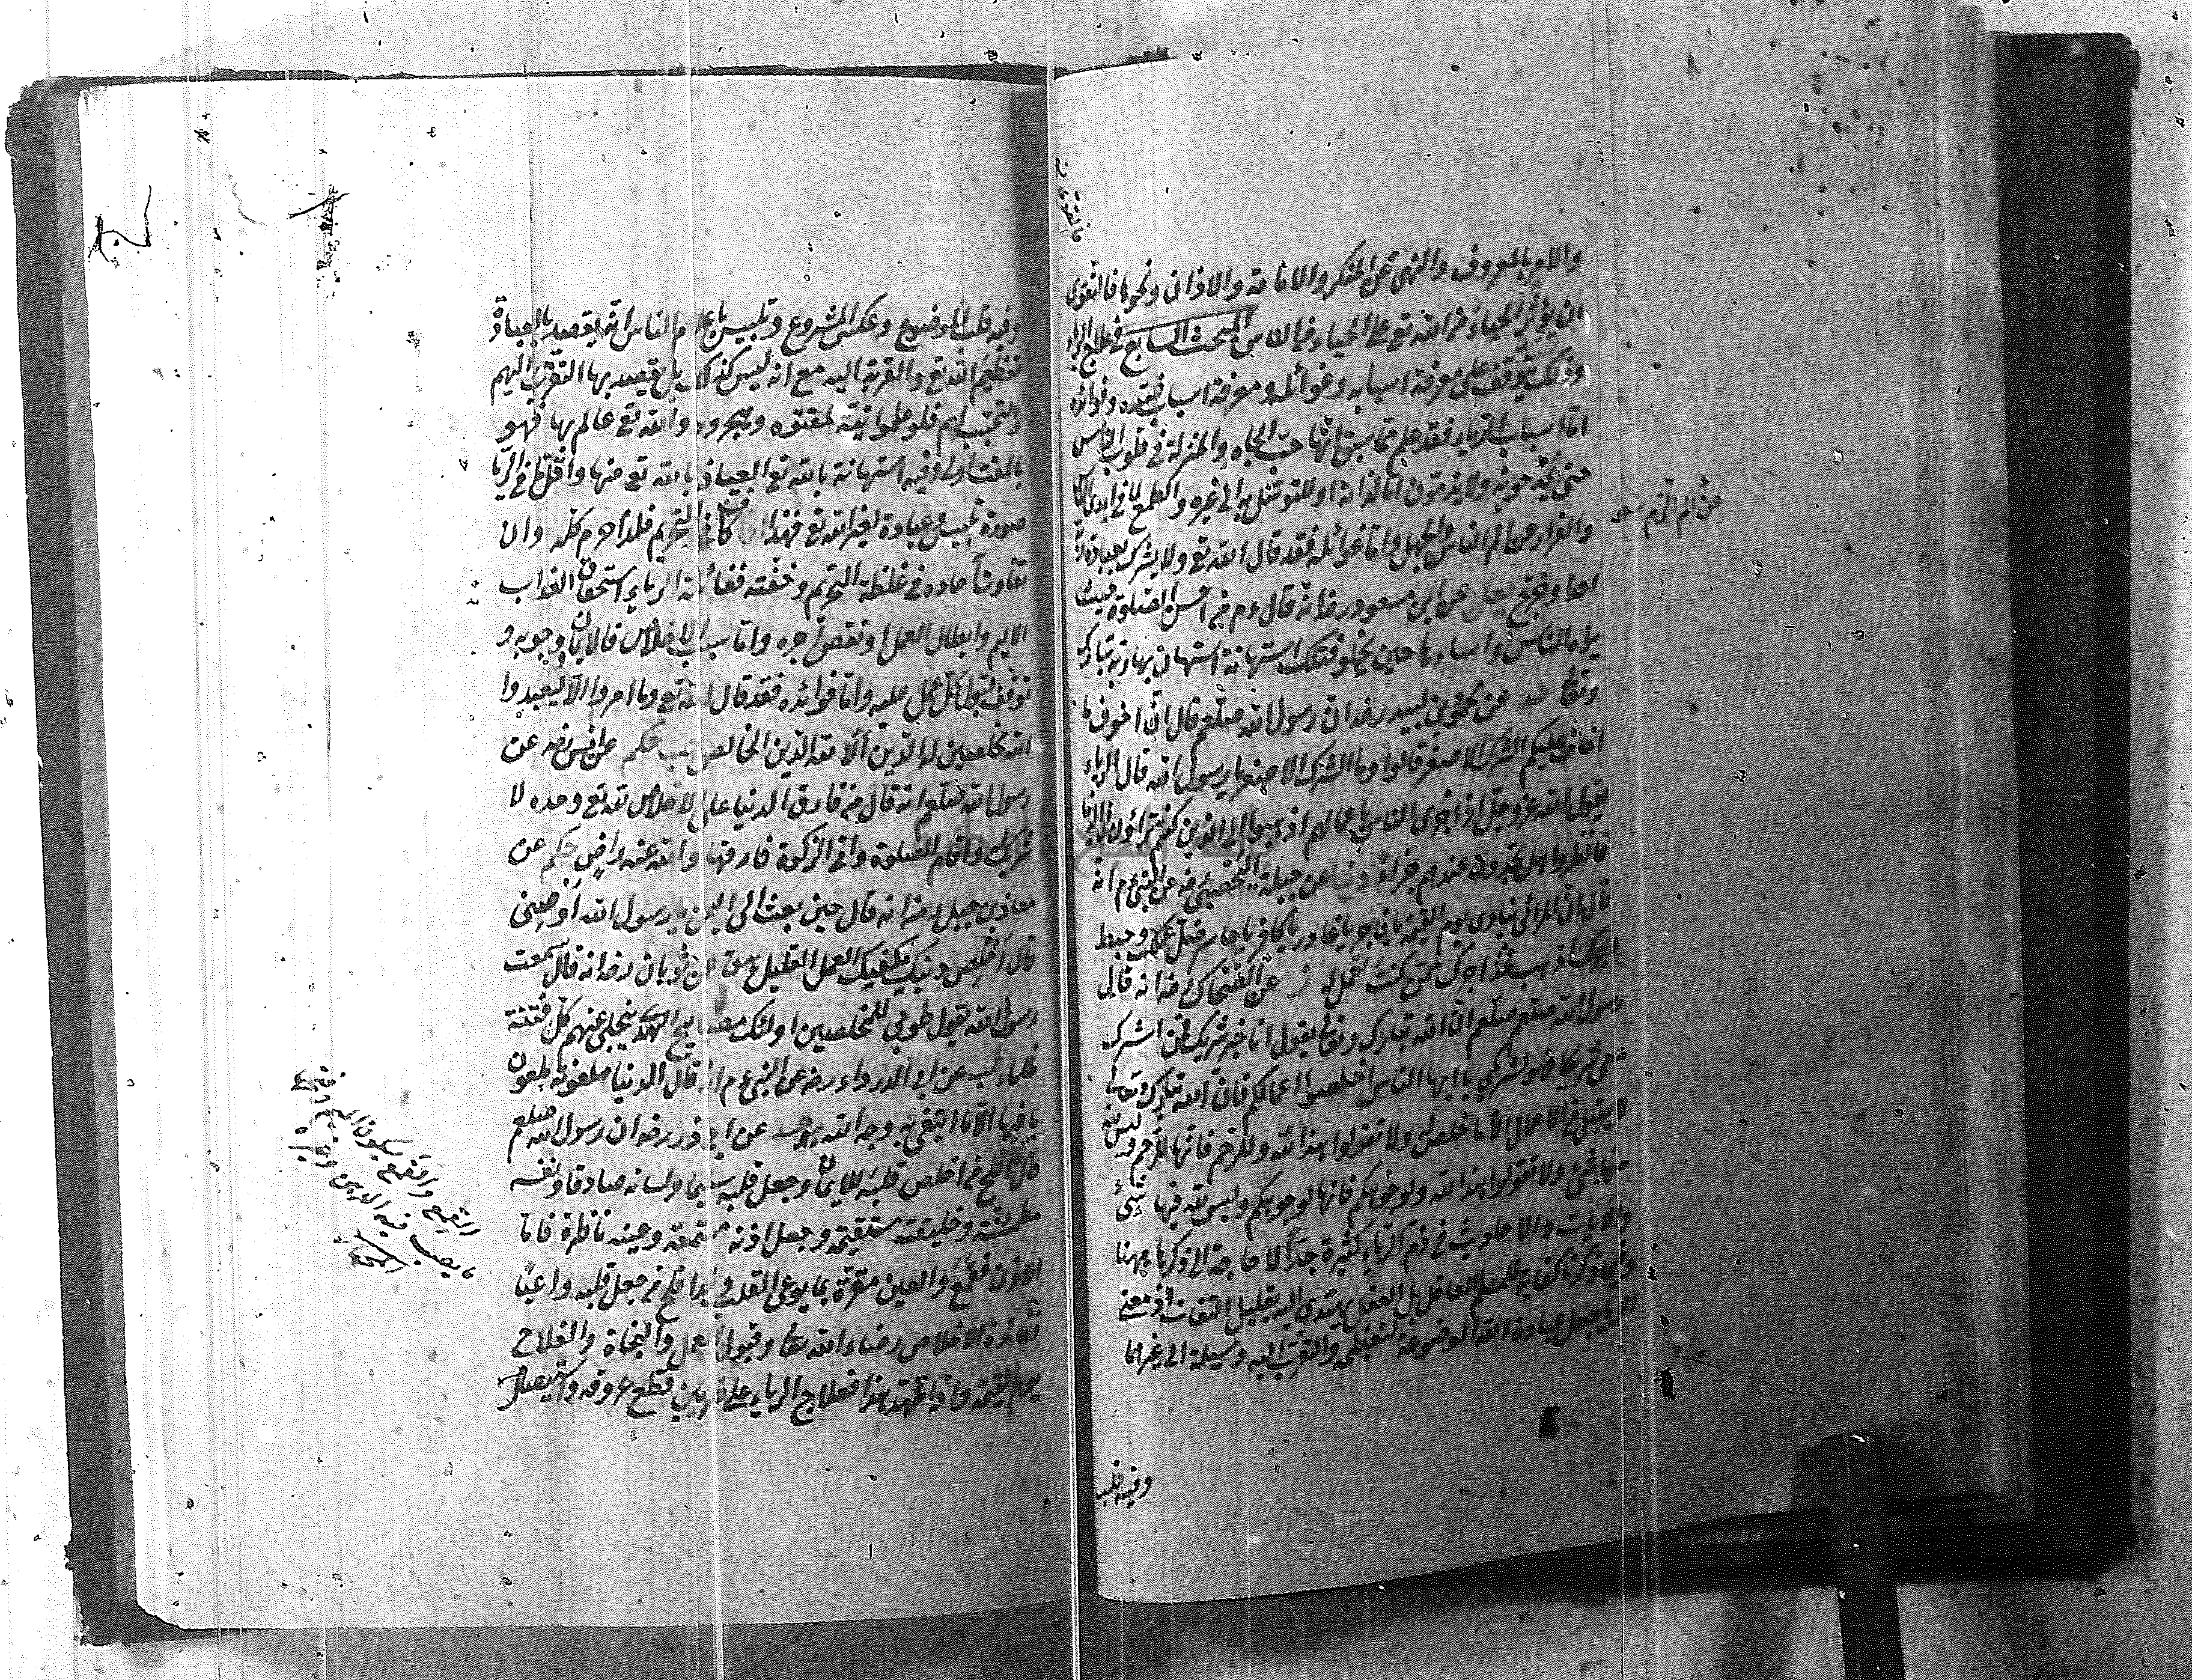 والامر بالمعروف والنهى عن المنكر والامامة والاذان ونحوها فالتقوى
ان يؤثر الحياء من الله تع على الحياء من الناس المبحث السابع فى علاج الرياء
وذلك يتوقف على معرفة اسبابه وغوائله ومعرفة اسباب ضده وفوائده
اما اسباب الرياء فقد علم مما سبق انها حب الجاه والمنزلة فى قلوب الناس
حتى يمدحونه ولا يذمون اما لذاته او للتوسل به الى غيره والطمع لما فى ايدى الناس
والفرار عن الم الناس والجهل واما غوائله فقد قال الله تع ولا يشرك بعبادة ربه
احدا وخرج يعلى عن ابن مسعود رض انه قال ءم من احسن الصلوة حيث
يراه الناس واساءها حين يخلو فتلك استهانة استهان بها ربه تبارك
وتعالى حد عن محمود بن لبيد رض ان رسول الله صلعم قال ان اخوف ما
اخاف عليكم الشرك الاصغر قالوا وما الشرك الاصغر يا رسول الله قال الرياء
يقول الله عز وجل اذا جزى الناس باعمالهم اذهبوا الى الذين كنتم تراؤن فى الدنيا
فانظروا هل تجدون عندهم جزاء دنيا عن جبلة اليحصبى رض عن النبى ءم انه
قال ان المرائى ينادى يوم القيمة يا فاجر يا غادر يا كافر يا خاسر ضل عملك وحبط
اجرك اذهب فخذ اجرك ممن كنت تعمل له ز عن الضحاك رض انه قال
رسول الله صلعم ان الله تبارك وتعالى يقول انا خير شريك فمن اشرك
معى شريكا فهو لشريكى يا ايها الناس اخلصوا اعمالكم فان الله تبارك وتعالى
لا يقبل من الاعمال الا ما خلص له ولا تقولوا هذا لله وللرحم فانها للرحم وليس لله
منها شئ ولا تقولوا هذا لله ولوجوهكم فانها لوجوهكم وليس لله فيها شئ
والايات والاحاديث فى ذم الرياء كثيرة جدا لا حاجة الى ذكرها ههنا
وفيما ذكرنا كفاية للمسلم العاقل بل العقل يهتدى اليه بقليل التفات اذ معنى
الرياء جعل عبادة الله الموضوعة لتعظيمه والتقرب اليه وسيلة الى غيرهما
وفيه قلب
وفيه قلب الموضوع وعكس المشروع وتلبيس باعلام الناس انه يقصد بالعبادة
تعظيم الله تع والقربة اليه مع انه ليس كذلك بل يقصد بها التقرب اليهم
والتحبب لهم فلو علموا نيته لمقتوه وهجروه والله تع عالم بها فهو
بالمقت اولى وفيه استهانة بالله تع العياذ بالله تع منها واقل ما فى الريا
صورة تلبيس وعبادة لغير الله تع فهذا كاف فى التحريم فلذا حرم كله وان
تفاوت آحاده فى غلظة التحريم وخفته فغائلة الرياء استحقاق العذاب
الاليم وابطال العمل او نقص اجره واما سبب الاخلاص فالايمان وجوبه و
توقف قبول كل عمل عليه واما فوائده فقد قال الله تع وما امروا الا ليعبدوا
الله مخلصين له الدين الا لله الدين الخالص حكم عن انس رض عن
رسول الله صلعم انه قال من فارق الدنيا على الاخلاص لله تع وحده لا
شريك له واقام الصلوة واتى الزكوة فارقها والله عنه راض حكم عن
معاذ بن جبل رض انه قال حين بعث الى اليمن يا رسول الله اوصنى
قال اخلص دينك يكفيك العمل القليل هق عن ثوبان رض انه قال سمعت
رسول الله يقول طوبى للمخلصين اولئك مصابيح الهدى تنجلى عنهم كل فتنة
ظلماء طب عن ابى الدرداء رض عن النبى ءم انه قال الدنيا ملعونة ملعون
ما فيها الا ما ابتغى به وجه الله حد عن ابى ذر رض ان رسول الله صلعم
قال قد افلح من اخلص قلبه للايمان وجعل قلبه سليما ولسانه صادقا ونفسه
مطمئنة وخليقته مستقيمة وجعل اذنه مستمعة وعينه ناظرة فاما
الاذن فقمع والعين مقرة بما يوعى القلب وقد افلح من جعل قلبه واعيا
ففائدة الاخلاص رضاء الله تعا وقبول العمل والنجاة والفلاح
يوم القيمة واذا تمهد هذا فعلاج الرياء على ضربين قطع عروقه واستيصال